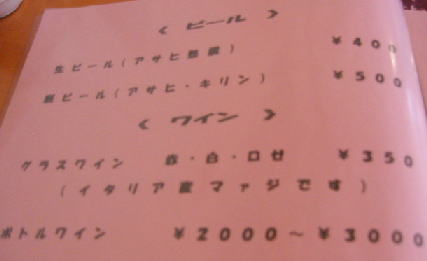 < ビール >
生ビール(アサヒ熟撰) ¥400
瓶ビール(アサヒ・キリン) ¥500
< ワイン >
グラスワイン 赤・白・ロゼ ¥350
(イタリア産マァジです)
ボトルワイン ¥2000～¥3000